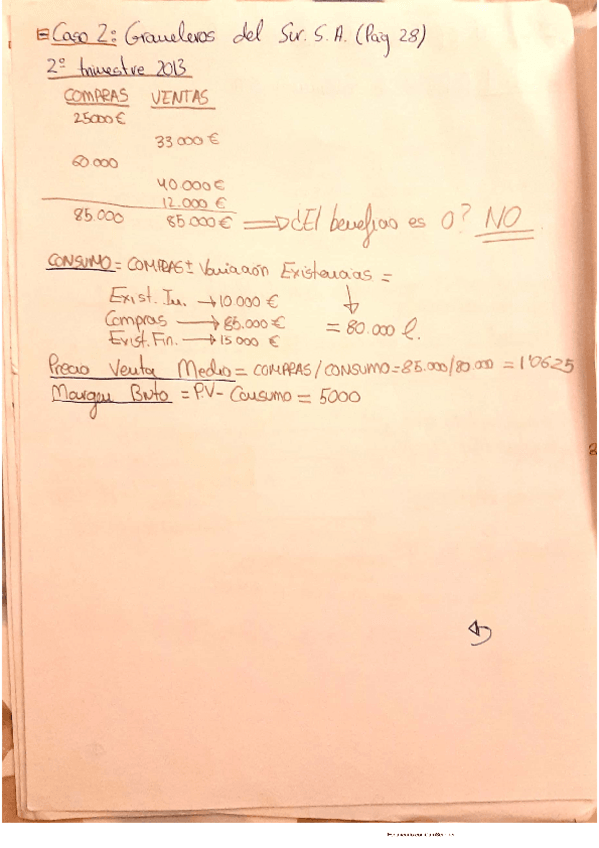 Caso 2: Graneleros del Sur. S.A. (Pág 28)
2º trimestre 2013
COMPRAS VENTAS
25000 €
33 000 €
60 000
40.000 €
12.000 €
85.000 85.000 € ⟹ ¿El beneficio es 0? NO
CONSUMO = COMPRAS ± Variación Existencias =
Exist. In. → 10.000 €
Compras → 85.000 € = 80.000 l.
Exist. Fin. → 15 000 €
Precio Venta Medio = COMPRAS / CONSUMO = 85.000/80.000 = 1'0625
Margen Bruto = P.V - Consumo = 5000